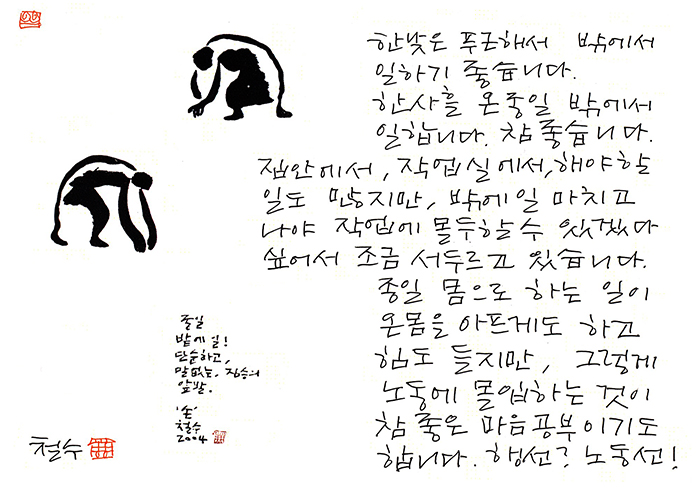 한낮은 푸근해서 밖에서
일하기 좋습니다.
한사흘 온종일 밖에서
일합니다. 참 좋습니다.
집안에서, 작업실에서, 해야할
일도 많지만, 밖에일 마치고
나야 작업에 몰두할수 있겠다
싶어서 조금 서두르고 있습니다.
종일 몸으로 하는 일이
온몸을 아프게도 하고
힘도 들지만, 그렇게
노동에 몰입하는 것이
참 좋은 마음공부이기도
합니다. 행선? 노동선!
종일
밭에 일!
단순하고,
말없는, 짐승의
앞발.
'손'
철수
2004
철수